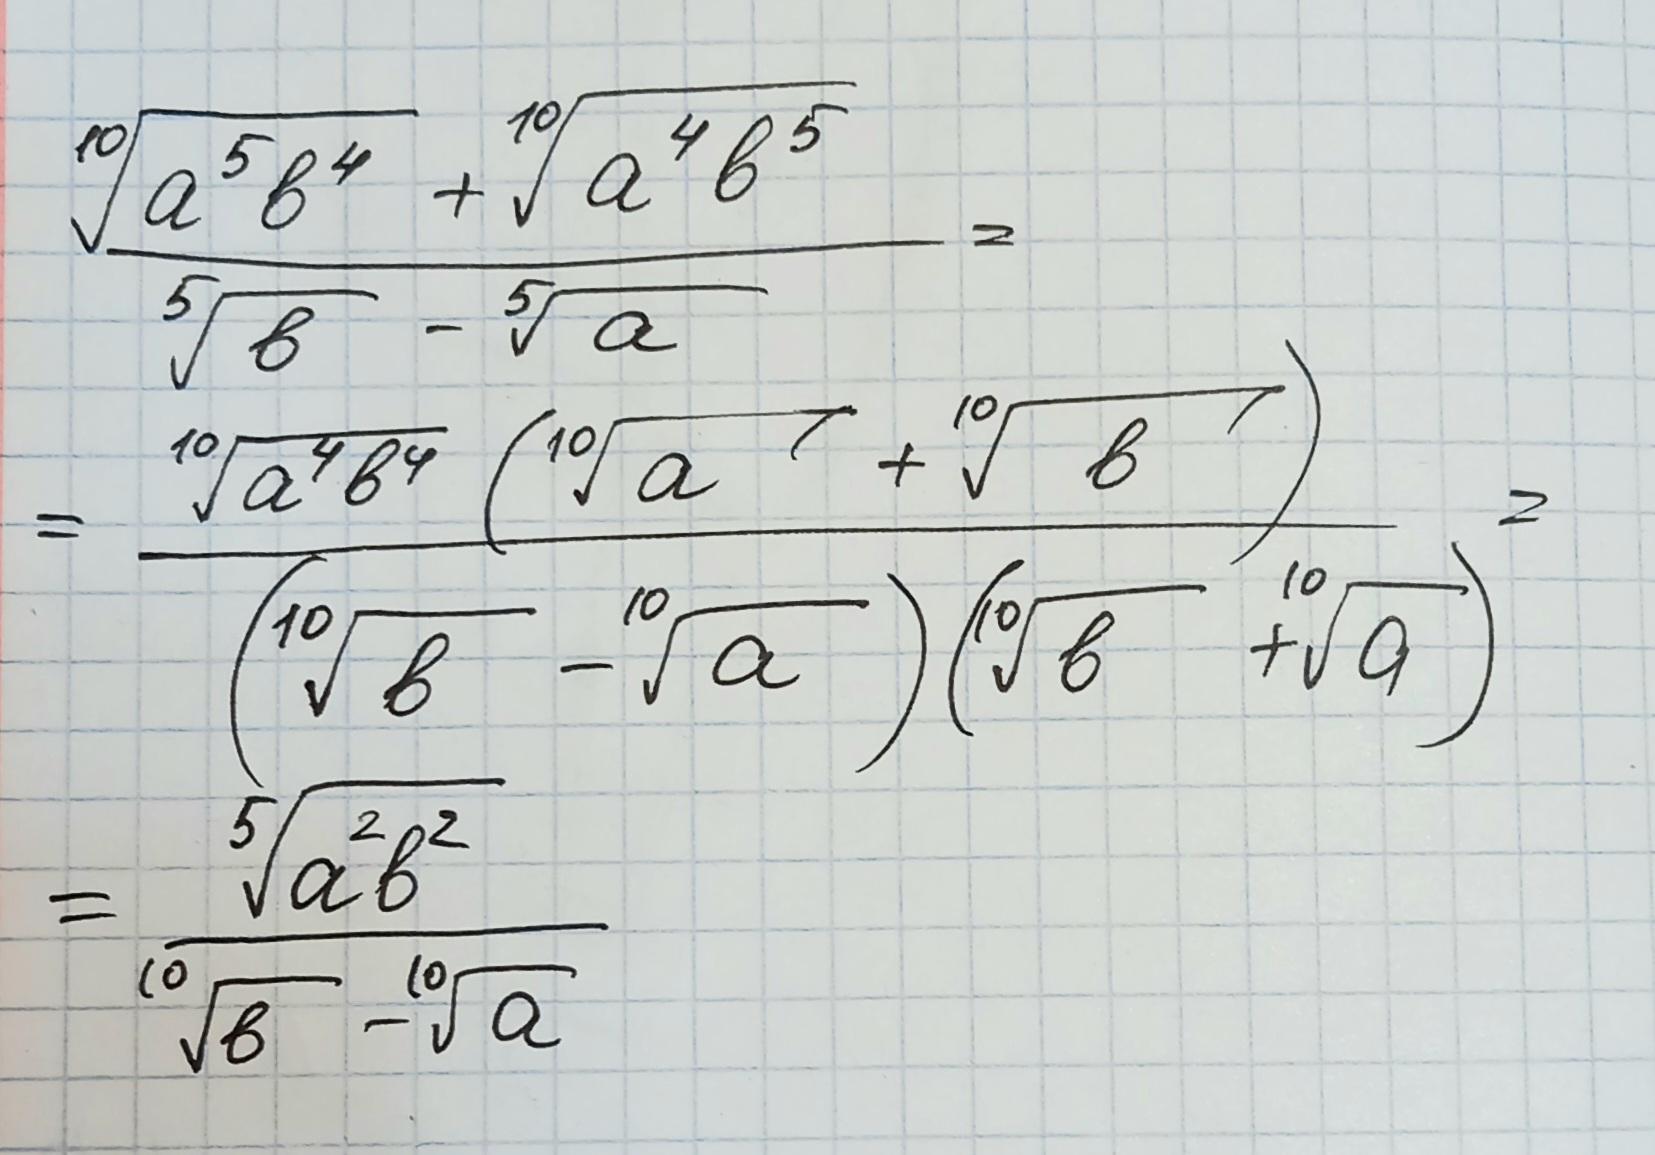 \frac{\sqrt[10]{a^5 b^4} + \sqrt[10]{a^4 b^5}}{\sqrt[5]{b} - \sqrt[5]{a}} =
= \frac{\sqrt[10]{a^4 b^4} (\sqrt[10]{a} + \sqrt[10]{b})}{(\sqrt[10]{b} - \sqrt[10]{a})(\sqrt[10]{b} + \sqrt[10]{a})} =
= \frac{\sqrt[5]{a^2 b^2}}{\sqrt[10]{b} - \sqrt[10]{a}}